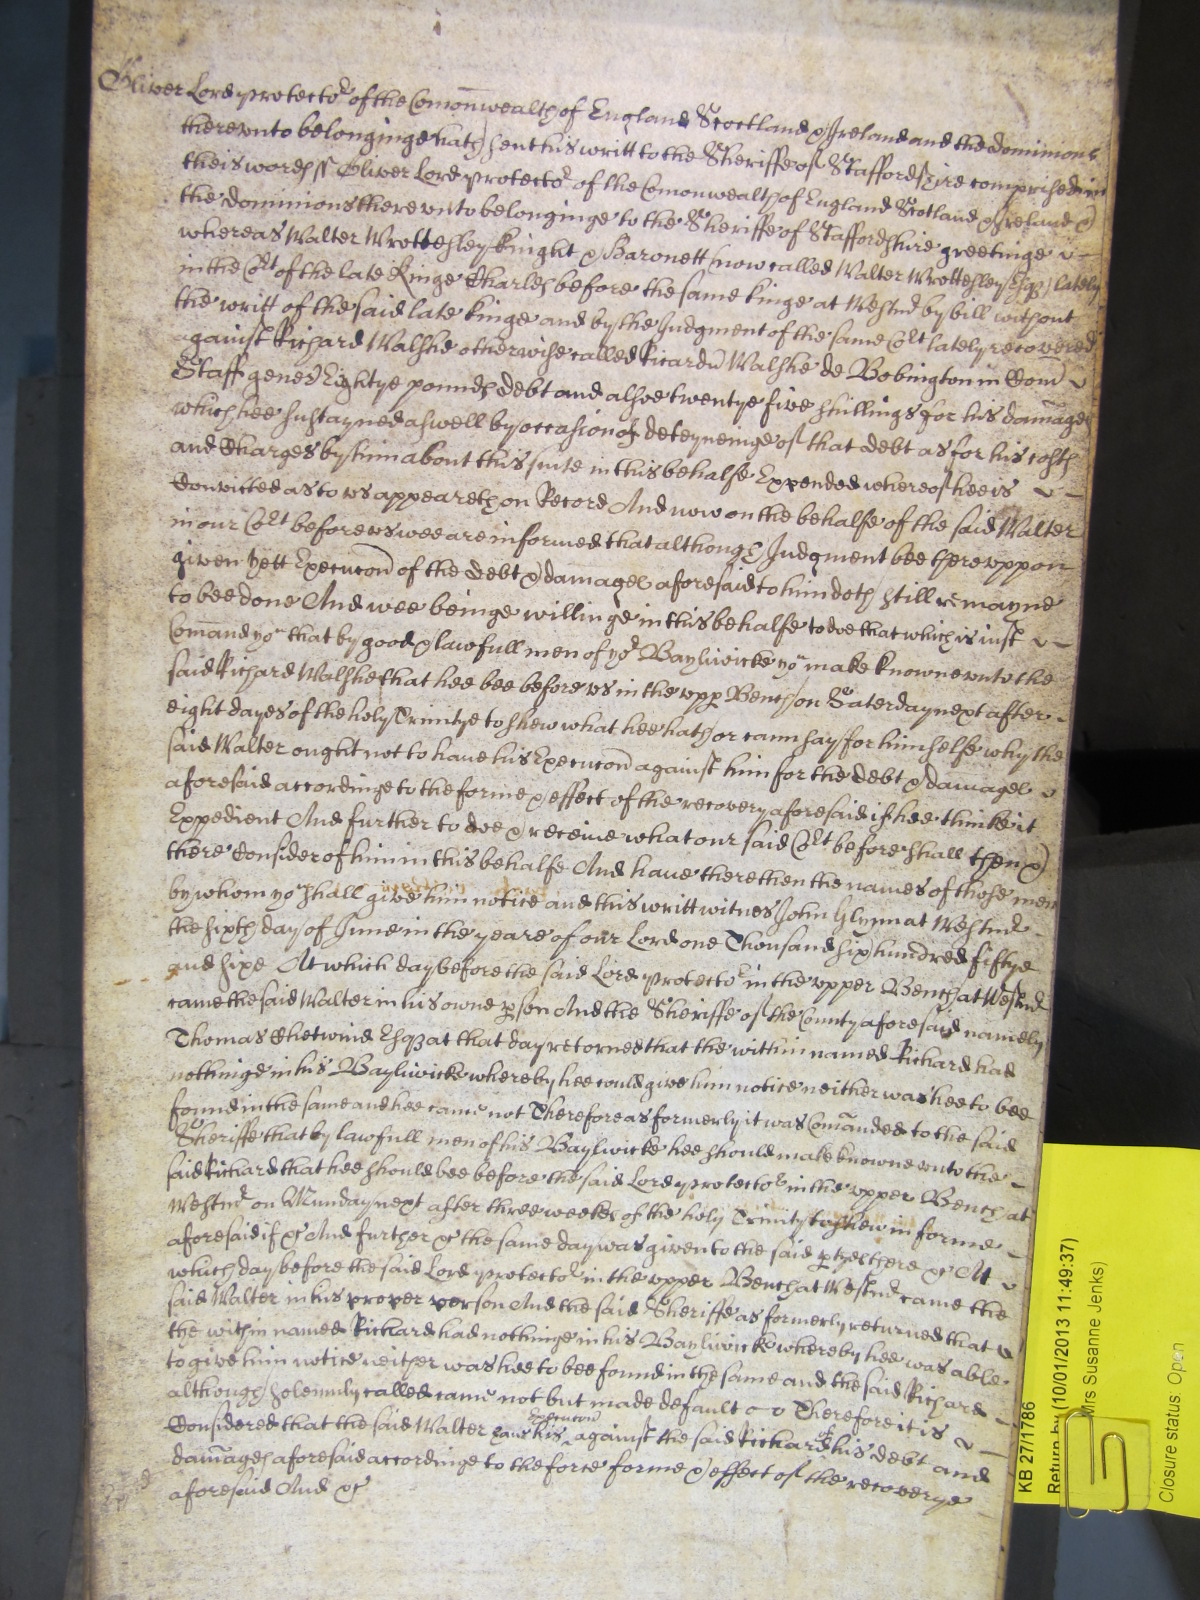 Oliver Lord protector of the Comonwealth of England Scottland & Ireland and the dominions
therevnto belonginge hath sent his writt to the Sheriffe of Staffordshire comprised in
theis words ss Oliver Lord protector of the Comonwealth of England Scotland & Ireland &
the dominions therevnto belonginge to the Sheriffe of Staffordshire greetinge
whereas Walter Wrottesley knight & Baronett (now called Walter Wrottesley Esqr) lately
in the Cort of the late Kinge Charles before the same kinge at Westmr by bill without
the writt of the said late kinge and by the Judgment of the same Cort lately recovered
against Richard Walshe otherwise called Ricardu Walshe de Bobington in Com
Staff gener Eightye pounds debt and alsoe twentye five shillings for his damages
which hee sustayned aswell by occasion of deteyneinge of that debt as for his costs
and Charges by him about his suite in this behalfe Expended whereof hee is
Convicted as to vs appeareth on Record And now on the behalfe of the said Walter
in our Cort before vs wee are informed that although Judgment bee therevppon
given yett Execucon of the debt & damages aforesaid to him doth still remayne
to bee done And wee beinge willinge in this behalfe to doe that which is iust
Comand yow that by good & lawfull men of yor Bayliwicke yow make knowne vnto the
said Richard Walshe that hee bee before vs in the vpp Bench on Saterday next after
eight dayes of the holy Trinitye to shew what hee hath or cann say for himselfe why the
said Walter ought not to have his Execucon against him for the debt & damages
aforesaid accordinge to the forme & effect of the recovery aforesaid if hee thinke it
Expedient And further to doe & receive what our said Cort before shall then &
there Consider of him in this behalfe And have there then the names of those men
by whom yow shall give him notice and this writt witnes John Glynn at Westmr
the sixth day of June in the yeare of our Lord one Thousand six hundred fiftye
and sixe At which day before the said Lord protector in the vpper Bench at Westmr
came the said Walter in his owne pson And the Sheriffe of the County aforesaid namely
Thomas Chetwind Esqr at that day retorned that the within named Richard had
nothinge in his Bayliwicke whereby hee could give him notice neither was hee to bee
found in the same and hee came not Therefore as formerly it was Comanded to the said
Sheriffe that by lawfull men of his Bayliwicke hee should make knowne vnto the
said Richard that hee should bee before the said Lord protector in the vpper Bench at
Westmr on Munday next after three weekes of the holy Trinity to shew in forme
aforesaid if &c And further &c the same day was given to the said pties there &c At
which day before the said Lord protector in the vpper Bench at Westmr came the
said Walter in his proper person And the said Sheriffe as formerly returned that
the within named Richard had nothinge in his Bayliwicke whereby hee was able
to give him notice neither was hee to bee found in the same and the said Richard
although solemnly called came not but made default Therefore it is
Considered that the said Walter have his Execucon against the said Richard of his debt and
damages aforesaid accordinge to the force forme & effect of the recoverye
aforesaid And &c
KB 27/1786
Return by (10/01/2013 11:49:37)
Mrs Susanne Jenks)
Closure status: Open